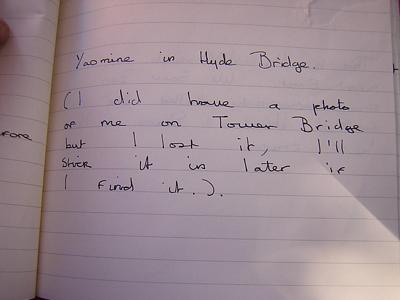 Yasmine in Hyde Bridge.
(I did have a photo
of me on Tower Bridge
but I lost it, I'll
fore
stick it in later if
I find it.).